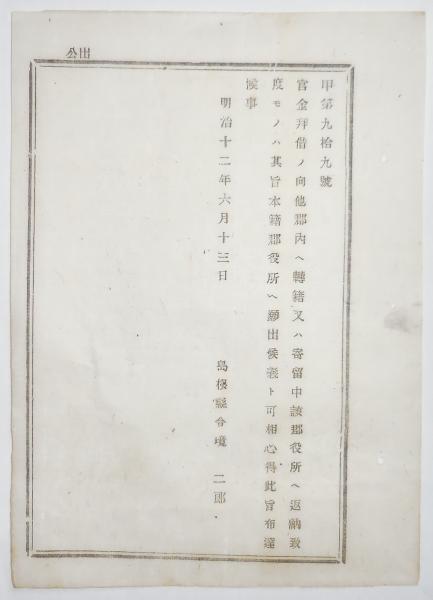 甲第九拾九號
官金拜借ノ向他郡內ヘ轉籍又ハ寄留中該郡役所ヘ返納致
度モノハ其旨本籍郡役所ヘ願出候義ト可相心得此旨布達
候事
明治十二年六月十三日
島根縣令境二郎